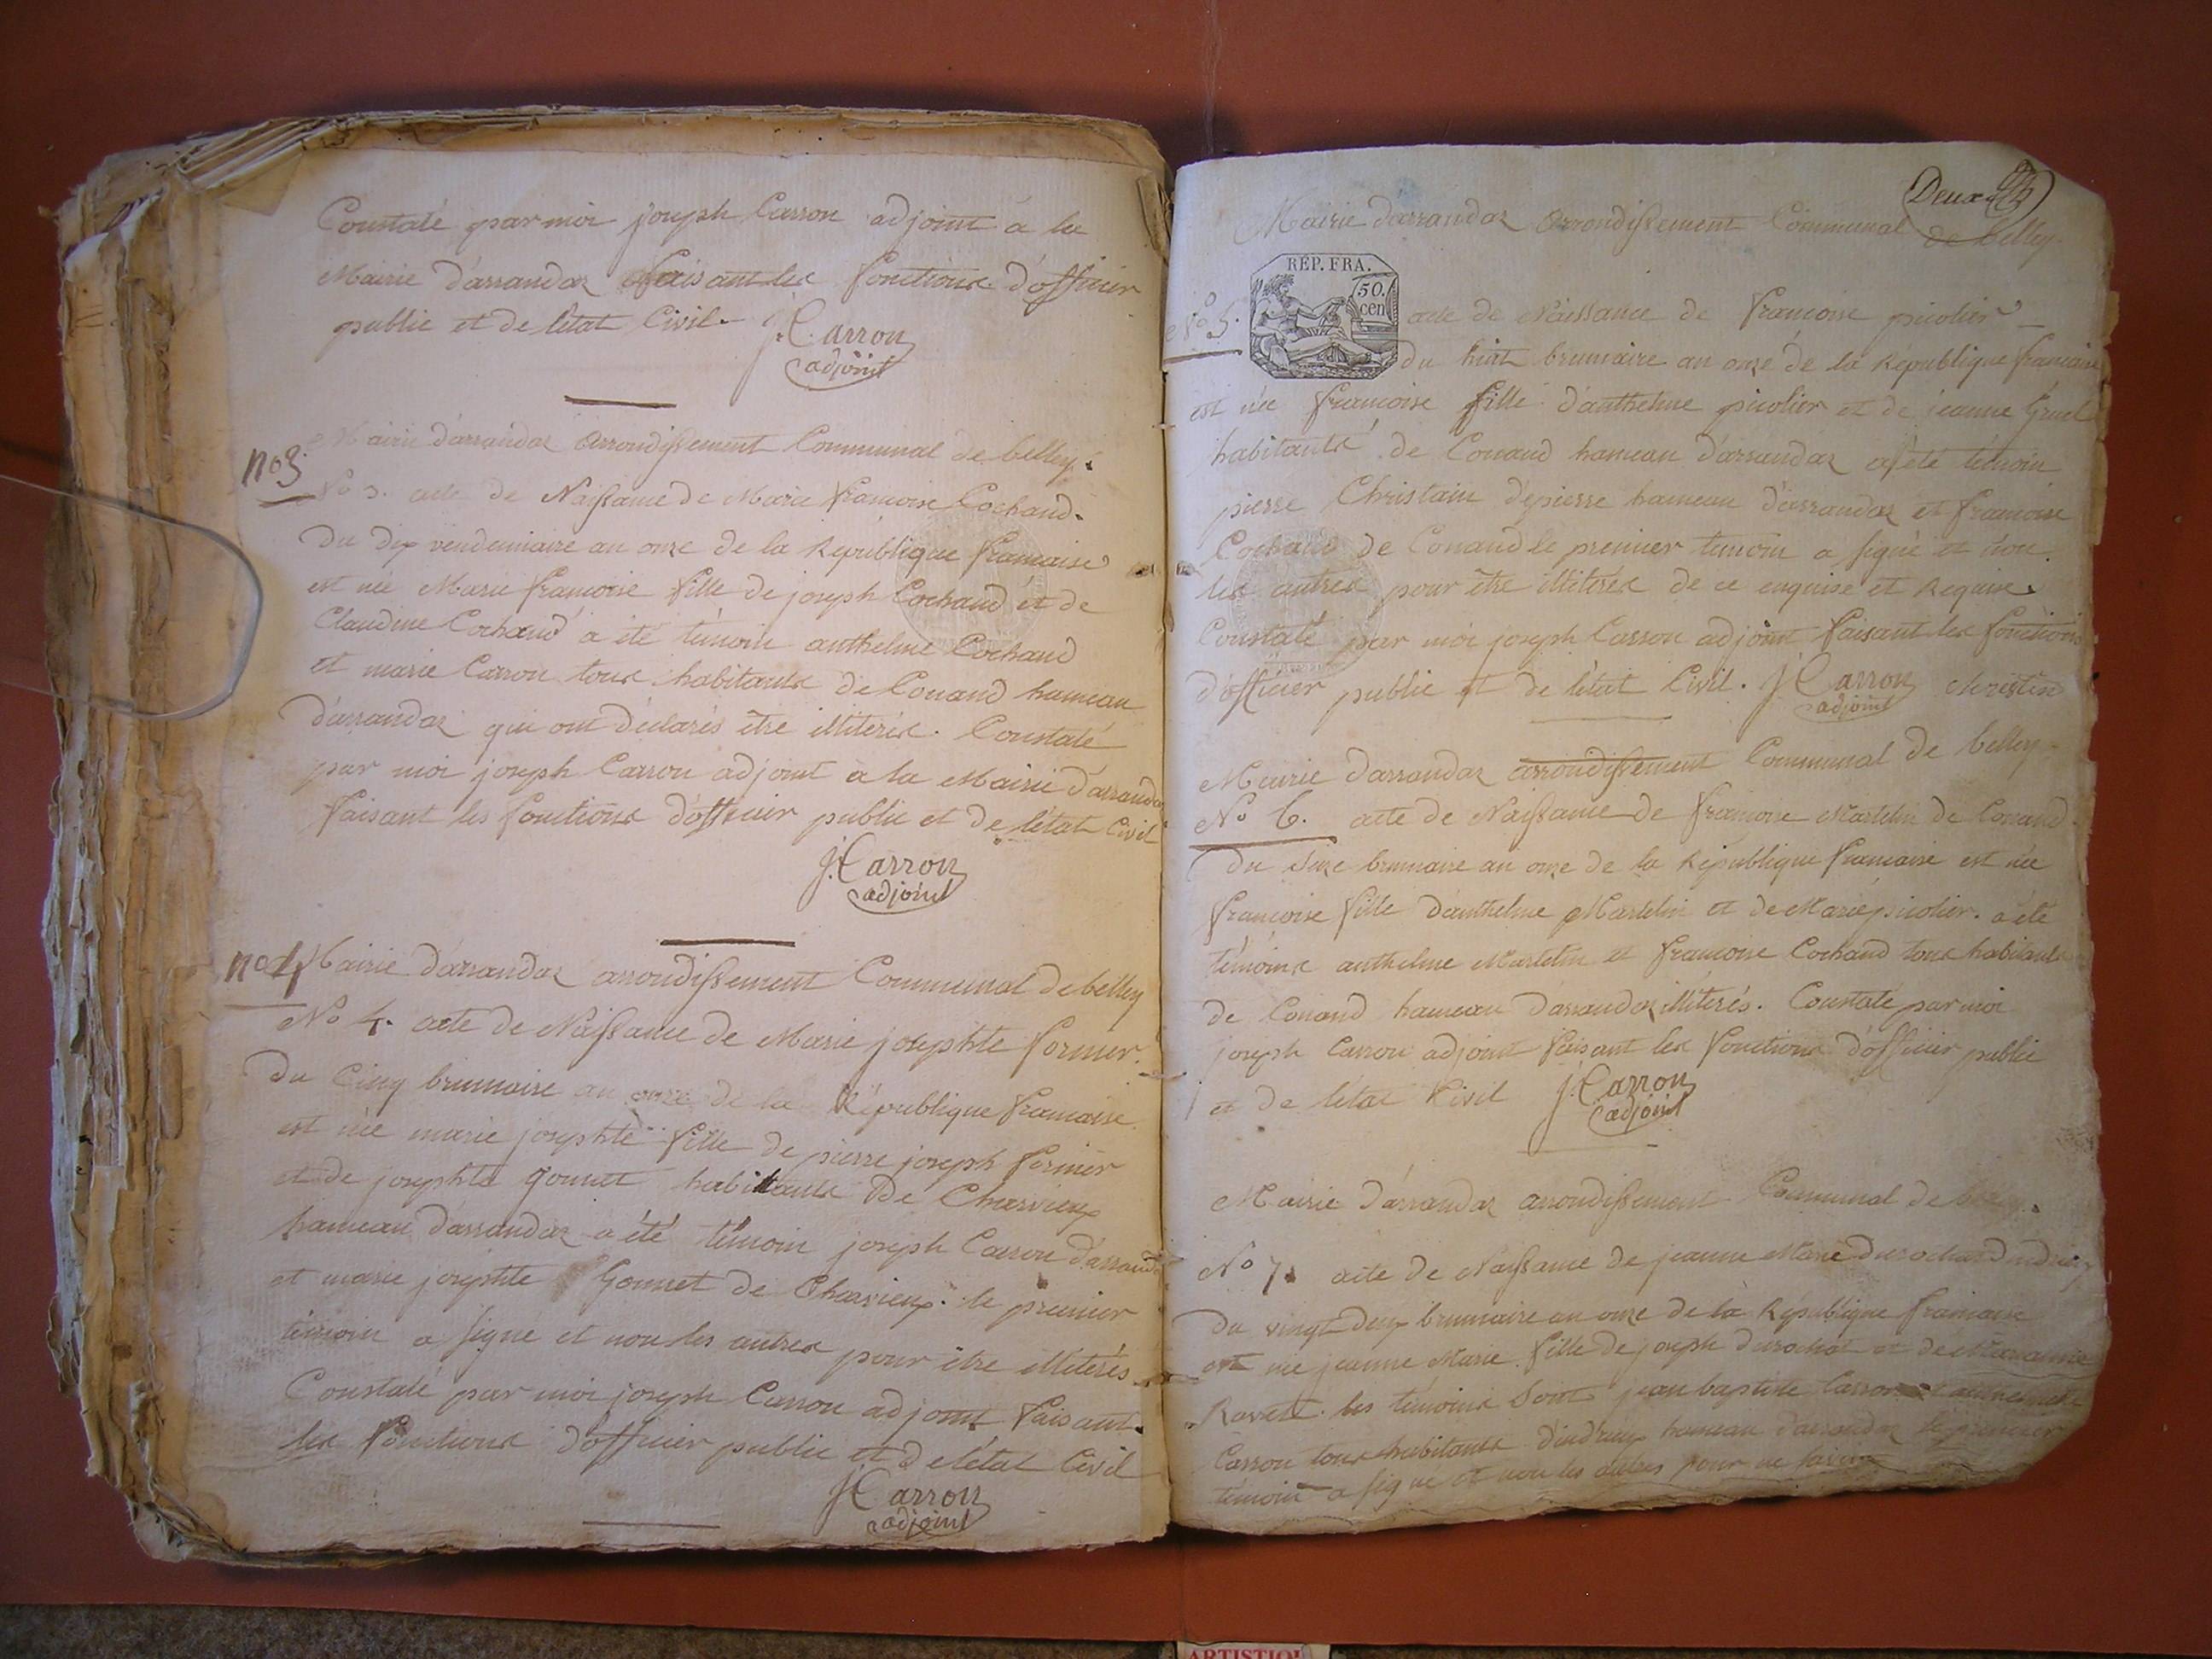 Constaté par moi joseph Carron adjoint a la
Mairie d'arrandaz faisant les fonctions d'officier
public et de létat Civil. J. Carron
adjoint
Mairie d'arrandaz arrondissement Communal de belley.
no 3
No 3. acte de Naissance de Marie francoise Cochand.
Du dix vendemiaire an onze de la République francaise
est née Marie francoise fille de joseph Cochand et de
Claudine Cochand a été témoin anthelme Cochand
et marie Carron tous habitants de Conand hameau
d'arrandaz qui ont déclarés être illiterés. Constaté
par moi joseph Carron adjoint a la Mairie d'arrandaz
faisant les fonctions d'officier public et de létat Civil
J. Carron
adjoint
no 4 Mairie d'arrandaz arrondissement Communal de belley
No 4. acte de Naissance de Marie josephte
Du Cinq brumaire an onze de la République francaise
est née marie josephte fille de pierre joseph
et de josephte gonnet habitants de Charvieux
hameau d'arrandaz a été témoin joseph Carron d'arrandaz
et marie josephte Gonnet de Charvieux. le premier
témoin a signé et non les autres pour être illiterés
Constaté par moi joseph Carron adjoint faisant
les fonctions d'officier public et de létat Civil
J. Carron
adjoint
Deux
Mairie d'arrandaz arrondissement Communal de belley
RÉP. FRA.
50.
cen
No 5. acte de Naissance de francoise picolier
du huit brumaire an onze de la République francaise
est née francoise fille d'anthelme picolier et de jeanne
habitants de Conand hameau d'arrandaz a été témoin
pierre Christain d'epierre hameau d'arrandaz et francoise
Cochand de Conand le premier temoin a signé et non
les autres pour être illiterés de ce enquise et Requise
Constaté par moi joseph Carron adjoint faisant les fonctions
d'officier public et de létat Civil. J. Carron christin
adjoint
Mairie d'arrandaz arrondissement Communal de belley
No 6. acte de Naissance de francoise Martelin de Conand
du Seize brumaire an onze de la République francaise est née
francoise fille d'anthelme Martelin et de Marie picolier. a été
témoins anthelme Martelin et francoise Cochand tous habitants
de Conand hameau d'arrandaz illiterés. Constaté par moi
joseph Carron adjoint faisant les fonctions d'officier public
et de létat Civil J. Carron
adjoint
Mairie d'arrandaz arrondissement Communal de belley.
No 7. acte de Naissance de jeanne Marie
Du vingt deux brumaire an onze de la République francaise
est née jeanne Marie fille de joseph durochat et de
Ravet. les témoins sont jean baptiste Carron et
Carron tous habitants d'indrieux hameau d'arrandaz le premier
témoin a signé et non les autres pour ne savoir